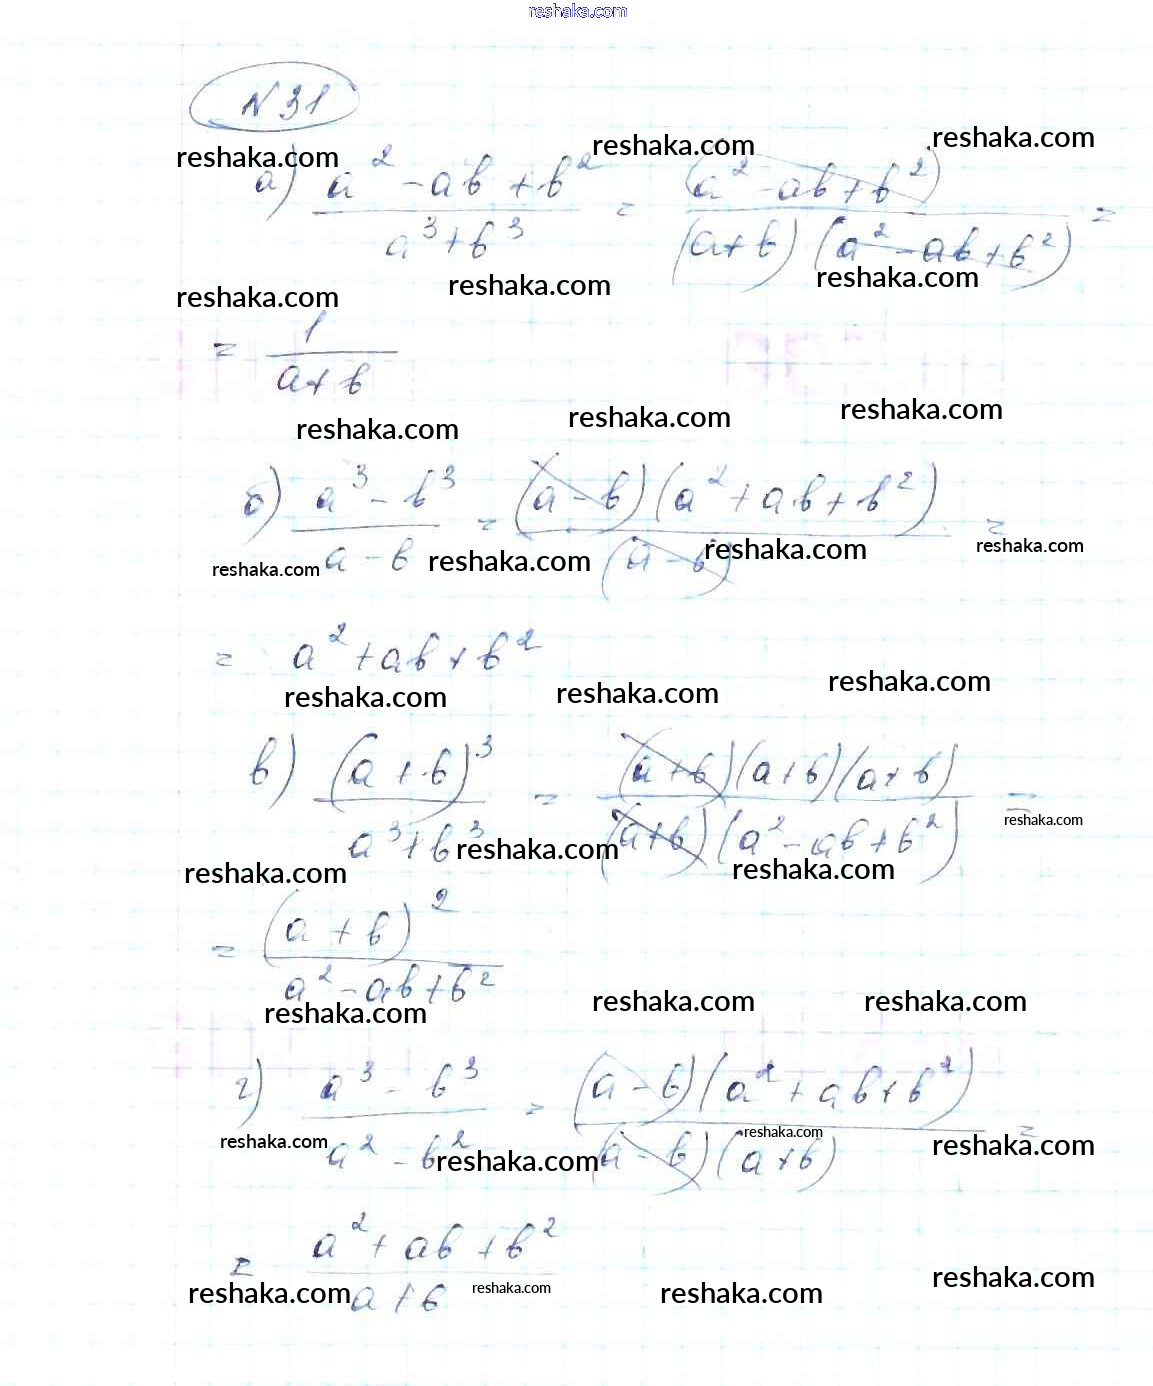 reshaka.com
N 31
reshaka.com reshaka.com reshaka.com
а) (a² - ab + b²)/(a³ + b³) = (a² - ab + b²)/((a + b)(a² - ab + b²)) =
reshaka.com reshaka.com reshaka.com
= 1/(a + b)
reshaka.com reshaka.com reshaka.com
б) (a³ - b³)/(a - b) = ((a - b)(a² + ab + b²))/(a - b) =
reshaka.com reshaka.com reshaka.com reshaka.com
= a² + ab + b²
reshaka.com reshaka.com reshaka.com
в) (a + b)³/(a³ + b³) = ((a + b)(a + b)(a + b))/((a + b)(a² - ab + b²)) =
reshaka.com reshaka.com reshaka.com reshaka.com
= (a + b)²/(a² - ab + b²)
reshaka.com reshaka.com reshaka.com
г) (a³ - b³)/(a² - b²) = ((a - b)(a² + ab + b²))/((a - b)(a + b)) =
reshaka.com reshaka.com reshaka.com reshaka.com
= (a² + ab + b²)/(a + b)
reshaka.com reshaka.com reshaka.com reshaka.com